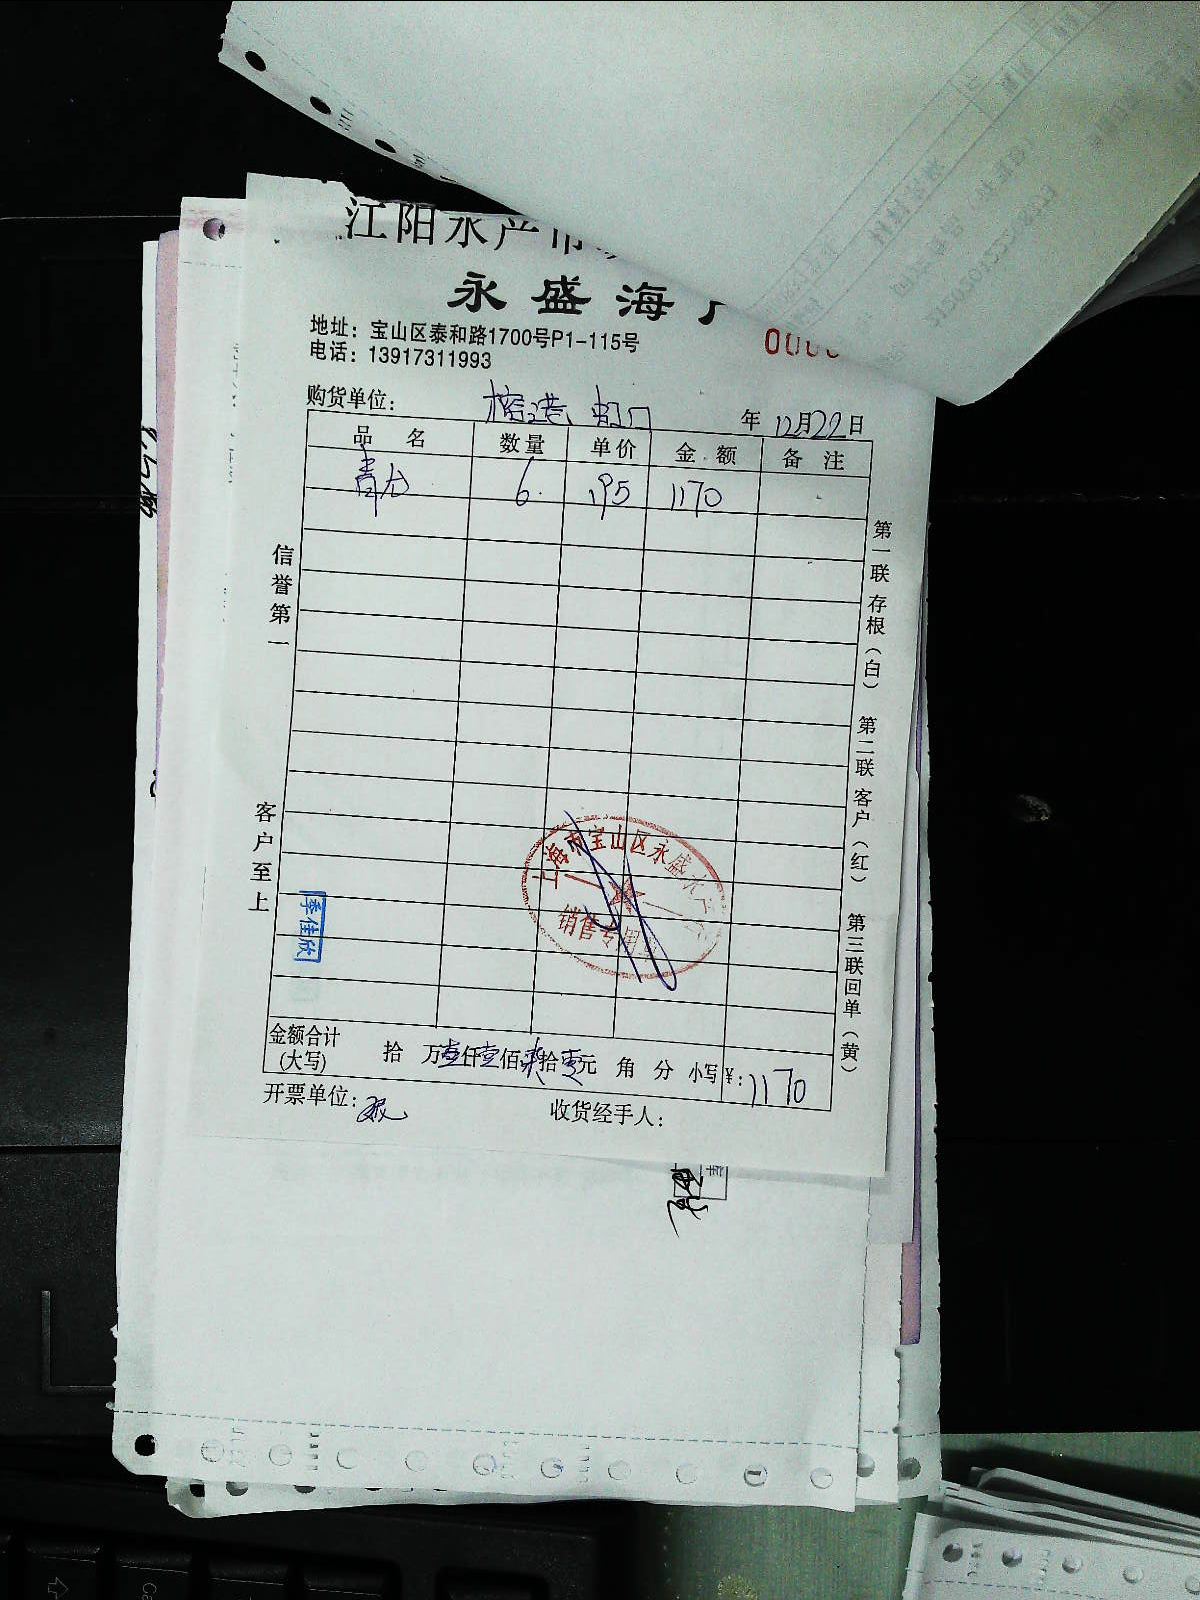 江阳水产市
永盛海
地址：宝山区泰和路1700号P1-115号
电话：13917311993
购货单位： 榕港、虹口 年 12月22日
品 名 数量 单价 金 额 备 注
青龙 6 195 1170
信誉第一
客户至上
第一联 存根（白） 第二联 客户（红） 第三联 回单（黄）
上海市宝山区永盛水产
销售专用章
季佳欣
金额合计(大写) 拾 万壹仟壹佰柒拾零元 角 分 小写￥: 1170
开票单位:
收货经手人: